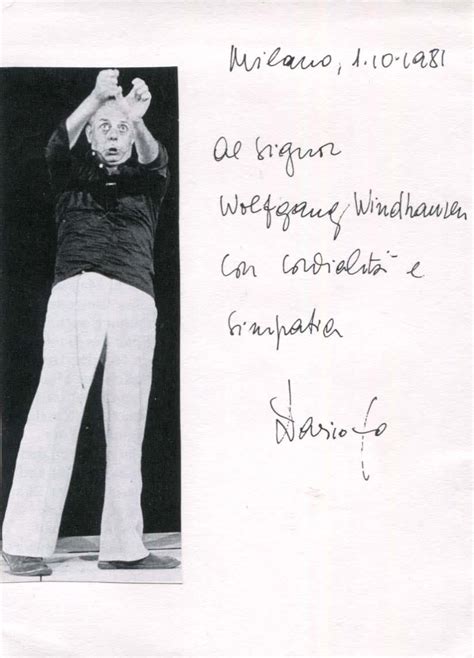 Milano, 1.10.1981
al Signor
Wolfgang Windhausen
con cordialità e
simpatia
Dario Fo